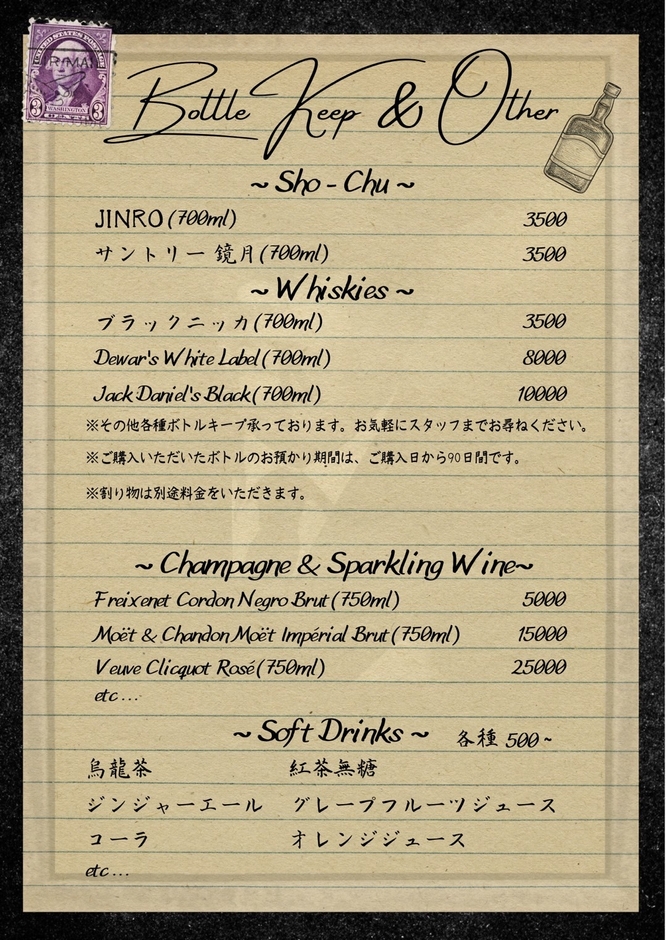 UNITED STATES POSTAGE
3 WASHINGTON 3
Bottle Keep & Other
~ Sho - Chu ~
JINRO (700ml) 3500
サントリー 鏡月(700ml) 3500
~ Whiskies ~
ブラックニッカ(700ml) 3500
Dewar's White Label(700ml) 8000
Jack Daniel's Black(700ml) 10000
※その他各種ボトルキープ承っております。お気軽にスタッフまでお尋ねください。
※ご購入いただいたボトルのお預かり期間は、ご購入日から90日間です。
※割り物は別途料金をいただきます。
~ Champagne & Sparkling Wine~
Freixenet Cordon Negro Brut(750ml) 5000
Moët & Chandon Moët Impérial Brut(750ml) 15000
Veuve Clicquot Rosé(750ml) 25000
etc...
~ Soft Drinks ~ 各種 500~
烏龍茶 紅茶無糖
ジンジャーエール グレープフルーツジュース
コーラ オレンジジュース
etc...